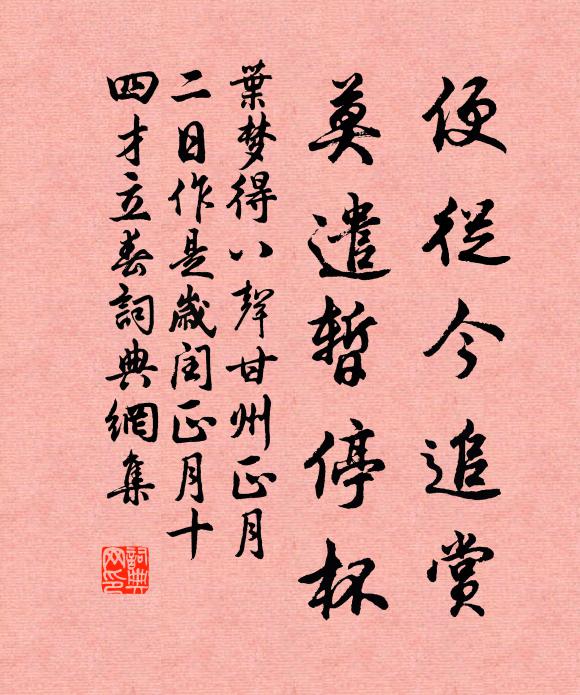 便從今追賞
莫遣暫停杯
葉梦得八聲甘州正月
二日作是歲閏正月十
四才立春詞典網集
詞典
网印